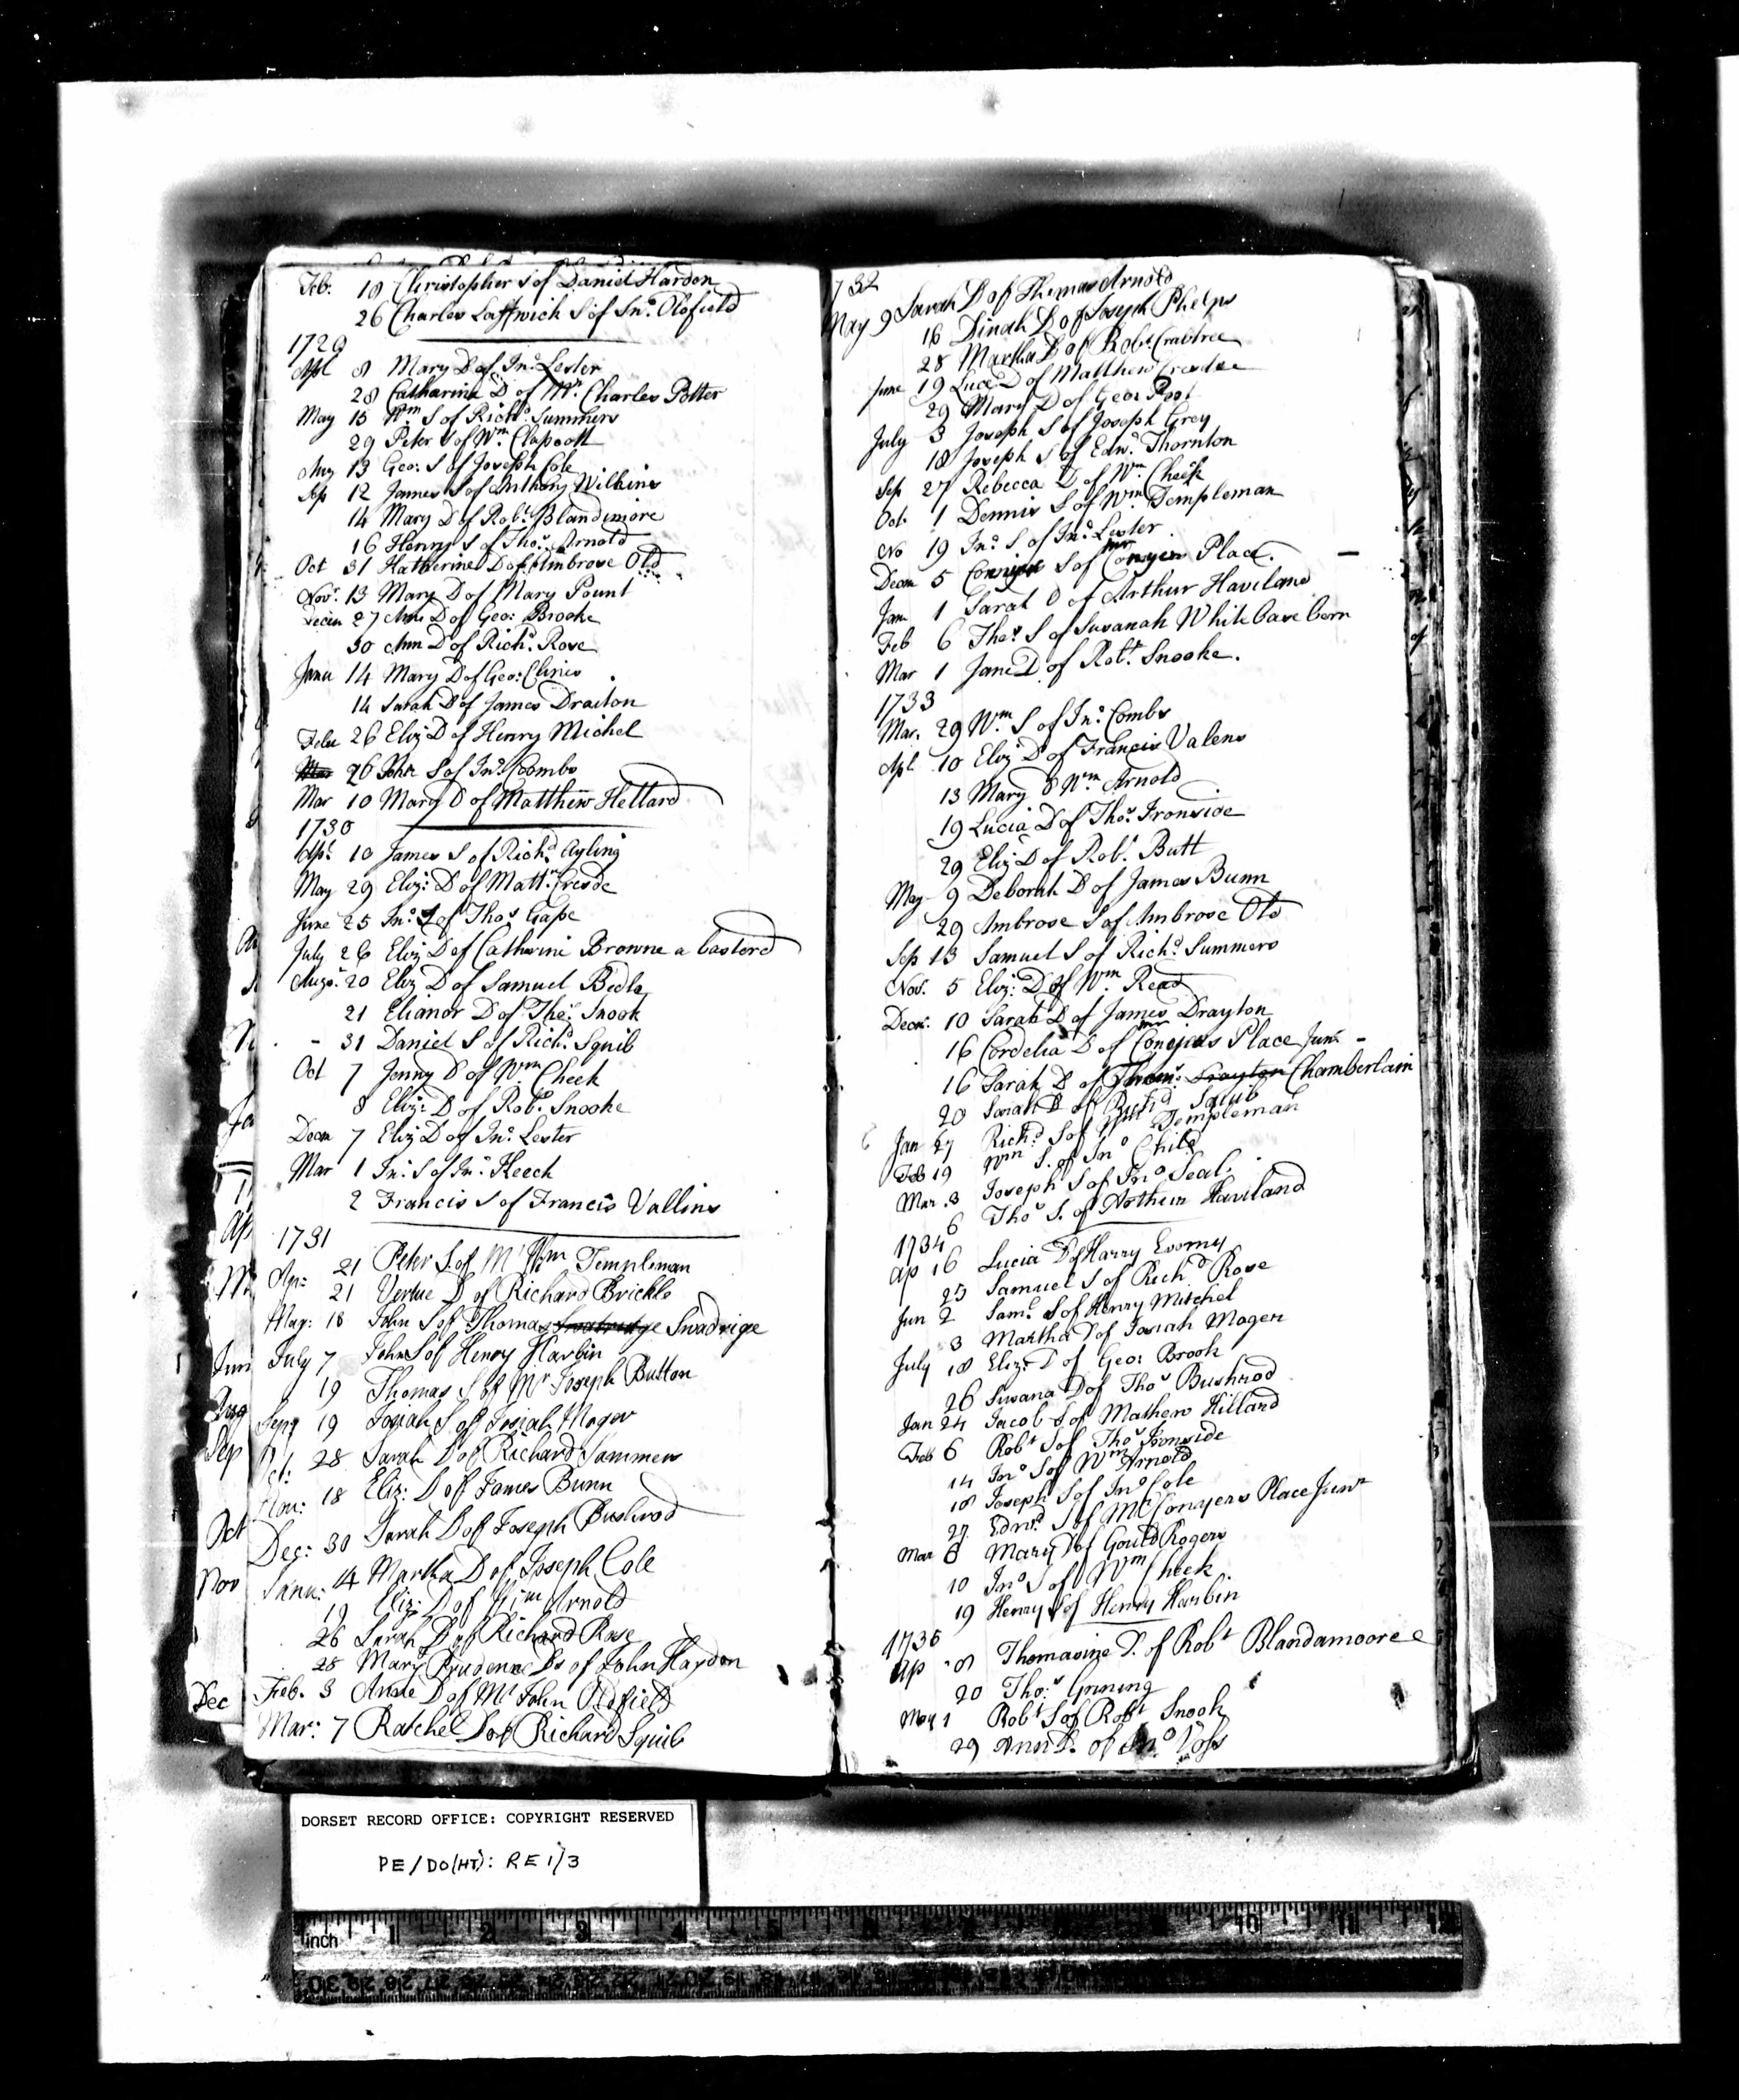 Feb: 18 Christopher S of Daniel Hardon
26 Charles Laffwich S of Jnº. Oldfield
1729
Apl 8 Mary D of Jnº. Lester
28 Catharina D of Mr. Charles Potter
May 15 Wm S of Richd. Summers
29 Peter S of Wm. Clapcott
Aug 13 Geo: S of Joseph Cole
Sep 12 James S of Anthony Wilkins
14 Mary D of Robt. Blandimore
16 Henry S of Thos. Arnold
Oct 31 Katherine D of Ambrose Old
Novr. 13 Mary D of Mary Pount
Decem 27 Ann D of Geo: Brooke
30 Ann D of Richd. Rose
Janu 14 Mary D of Geo: Clines
14 Sarah D of James Draiton
Febu 26 Eliz D of Henry Michel
26 John S of Jnº. Coombs
Mar 10 Mary D of Matthew Hellard
1730
Apl. 10 James S of Richd Ayling
May 29 Eliz: D of Matt. Cresde
June 25 Jnº. S of Thos Gape
July 26 Eliz D of Catharine Browne a bastard
Augs. 20 Eliz D of Samuel Bedla
21 Elianor D of Thos. Snook
- 31 Daniel S of Richd. Squib
Oct 7 Jenny D of Wm Cheek
8 Eliz: D of Robt. Snooke
Decm 7 Eliz D of Jnº. Lester
Mar 1 Jnº. S of Jnº. Keech
2 Francis S of Francis Vallins
1731
Apr: 21 Peter S. of Mr Wm Templeman
21 Vertue D of Richard Brickle
May: 18 John S of Thomas Swadridge Swadrige
July 7 John S of Henry Harbin
19 Thomas S of Mr Joseph Button
Sepr 19 Josiah S of Josiah Mager
Oct: 28 Sarah D of Richard Sammers
Nov: 18 Eliz: D of James Bunn
Dec: 30 Sarah D of Joseph Bushrod
Janu: 14 Martha D of Joseph Cole
19 Eliz: D of Wm Arnold
26 Sarah D of Richard Rose
28 Mary Prudence Ds of John Haydon
Feb. 3 Anne D of Mr John Oldfield
Mar: 7 Ratchel D of Richard Squib
1732
May 9 Sarah D of Thomas Arnold
16 Dinah D of Joseph Phelps
28 Martha D of Robt. Crabtree
June 19 Luce D of Matthew Cresdee
29 Mary D of Geo: Poot
July 3 Joseph S of Joseph Grey
18 Joseph S of Edwd. Thornton
Sep 27 Rebecca D of Wm Cheek
Oct. 1 Dennis S of Wm Templeman
No 19 Jnº. S of Jnº. Lester
Decm 5 Conyers S of Conyers Place. -
Jan 1 Sarah D of Arthur Haviland
Feb 6 Thos. S of Susanah White base born
Mar 1 Jane D of Robt. Snooke.
1733
Mar. 29 Wm. S of Jnº. Combs
Apl 10 Eliz D of Francis Valens
13 Mary D Wm Arnold
19 Lucia D of Thos. Ironside
29 Eliz D of Robt. Butt
May 9 Deborah D of James Bunn
29 Ambrose S of Ambrose Old
Sep 13 Samuel S of Richd. Summers
Nov. 5 Eliz: D of Wm Read
Decm: 10 Sarah D of James Drayton
16 Cordelia D of Conyers Place Junr. -
16 Sarah D of Drayton Chamberlain
20 Sarah D of Richd. Squib
Jan 27 Richd S of Wm Templeman
Feb 19 Wm S. of Jnº Child
Mar. 3 Joseph S of Jnº Seal.
6 Thos S. of Arthur Haviland
1734
Ap 16 Lucia D of Harry Evomy
25 Samuel S of Richd Rose
Jun 2 Saml. S of Henry Mitchel
3 Martha D of Josiah Mager
July 18 Eliz: D of Geo: Brook
26 Suvana D of Thos Bushrod
Jan 24 Jacob S of Mathew Hilland
Feb 6 Robt S of Thos Ironside
14 Jnº S of Wm Arnold
18 Joseph S of Jnº Cole
27. Edwd. S of Mr Conyers Place Junr
Mar 6 Mary D of Gould Rogers
10 Jnº S of Wm Cheek.
19 Henry S of Henry Harbin
1735
Ap 8 Thomasine D. of Robt Blandamooree
20 Thos: Gruning
May 1 Robt S of Robt Snook
29 Ann D. of Jnº Voss
Jun
Aug
Sep
Oct
Nov
Dec
DORSET RECORD OFFICE: COPYRIGHT RESERVED
PE/DO(HT): RE 1/3
inch 1 2 3 4 5 6 7 8 9 10 11 12